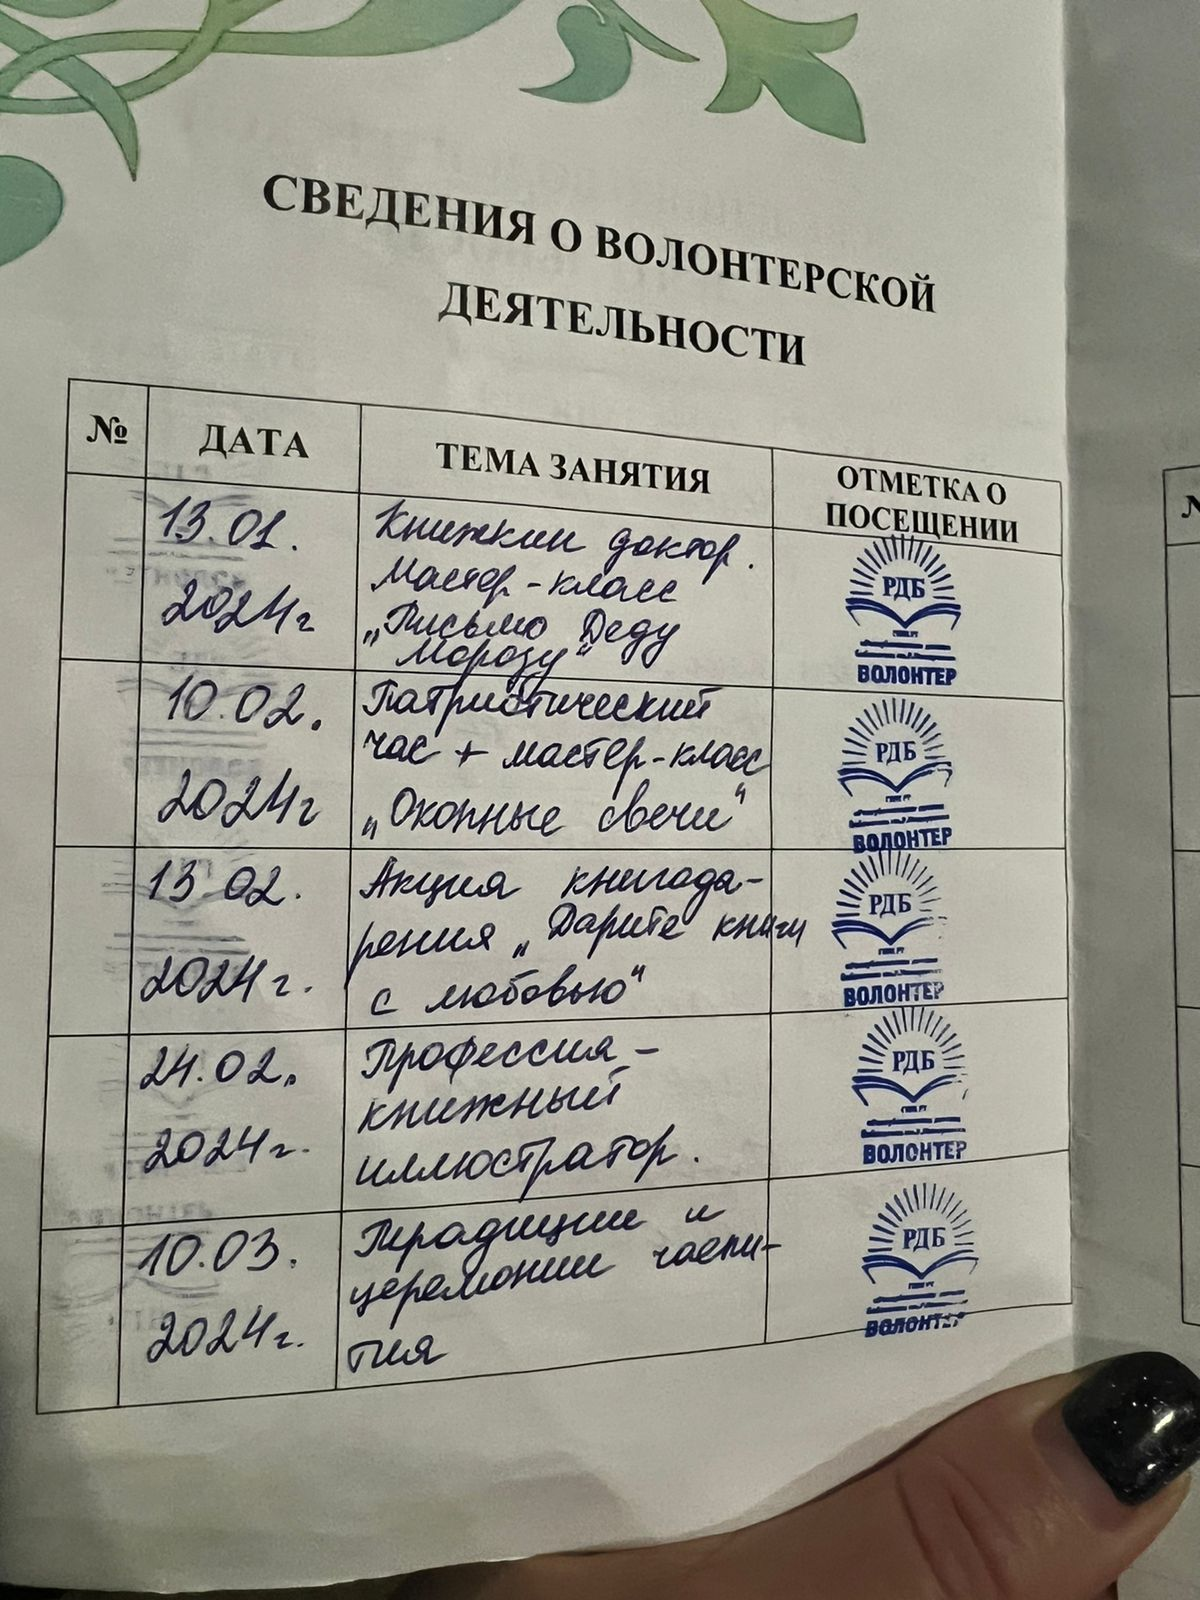 СВЕДЕНИЯ О ВОЛОНТЕРСКОЙ
ДЕЯТЕЛЬНОСТИ
№ ДАТА ТЕМА ЗАНЯТИЯ ОТМЕТКА О ПОСЕЩЕНИИ
13.01.
2024г
Книжкин доктор.
Мастер-класс
„Письмо Деду
Морозу“
РДБ
ВОЛОНТЕР
10.02.
2024г
Патриотический
час + мастер-класс
„Окопные свечи“
РДБ
ВОЛОНТЕР
13.02.
2024г.
Акция книгода-
рения „Дарите книги
с любовью“
РДБ
ВОЛОНТЕР
24.02.
2024г.
Профессия -
книжный
иллюстратор.
РДБ
ВОЛОНТЕР
10.03.
2024г.
Традиции и
церемонии чаепи-
тия
РДБ
ВОЛОНТЕР